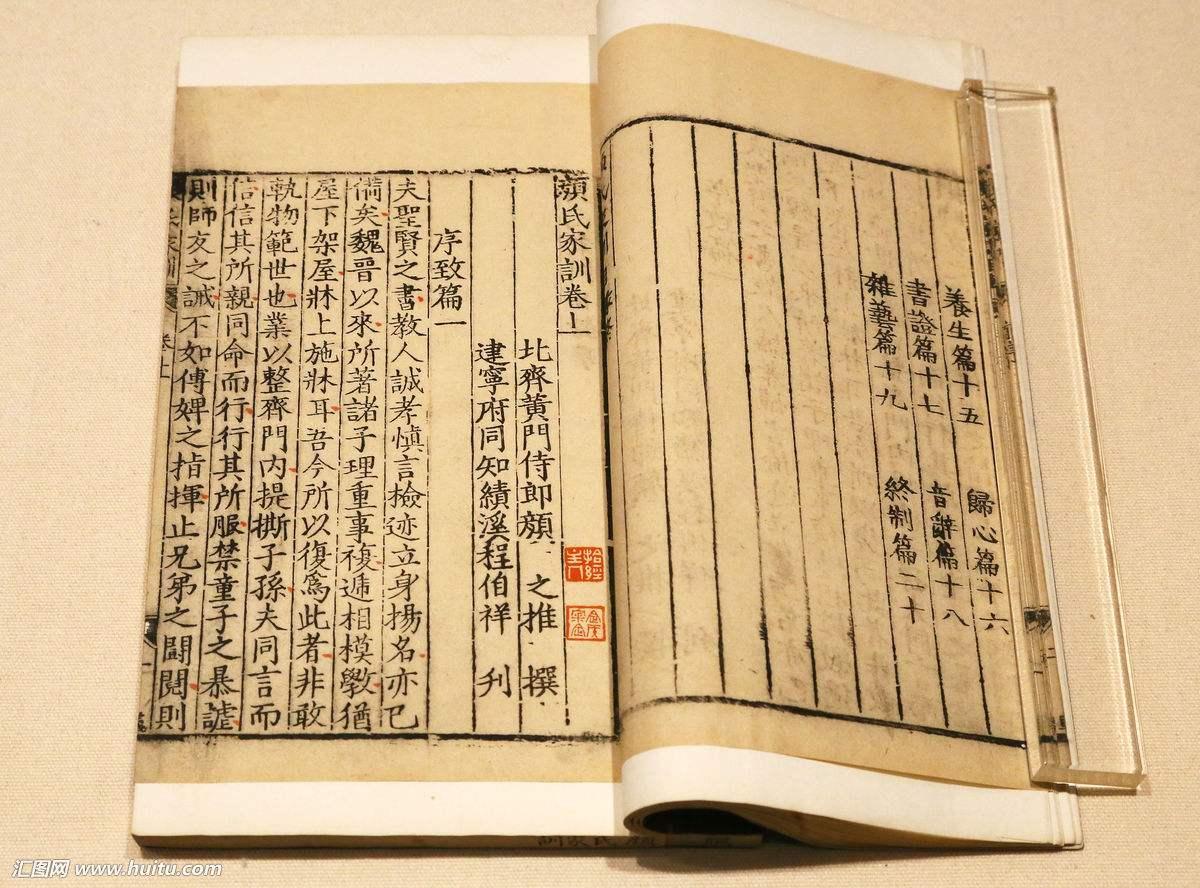 養生篇十五 歸心篇十六
書證篇十七 音辭篇十八
雜藝篇十九 終制篇二十
顏氏家訓卷上
北齊黃門侍郎顏 之推 撰
建寧府同知績溪程伯祥 刋
序致篇一
夫聖賢之書教人誠孝慎言檢迹立身揚名亦已
備矣魏晉以來所著諸子理重事複遞相模斆猶
屋下架屋牀上施牀耳吾今所以復爲此者非敢
軌物範世也業以整齊門內提撕子孫夫同言而
信信其所親同命而行行其所服禁童子之暴謔
則師友之誡不如傅婢之指揮止凡弟之鬪䦧則
汇图网 www.huitu.com